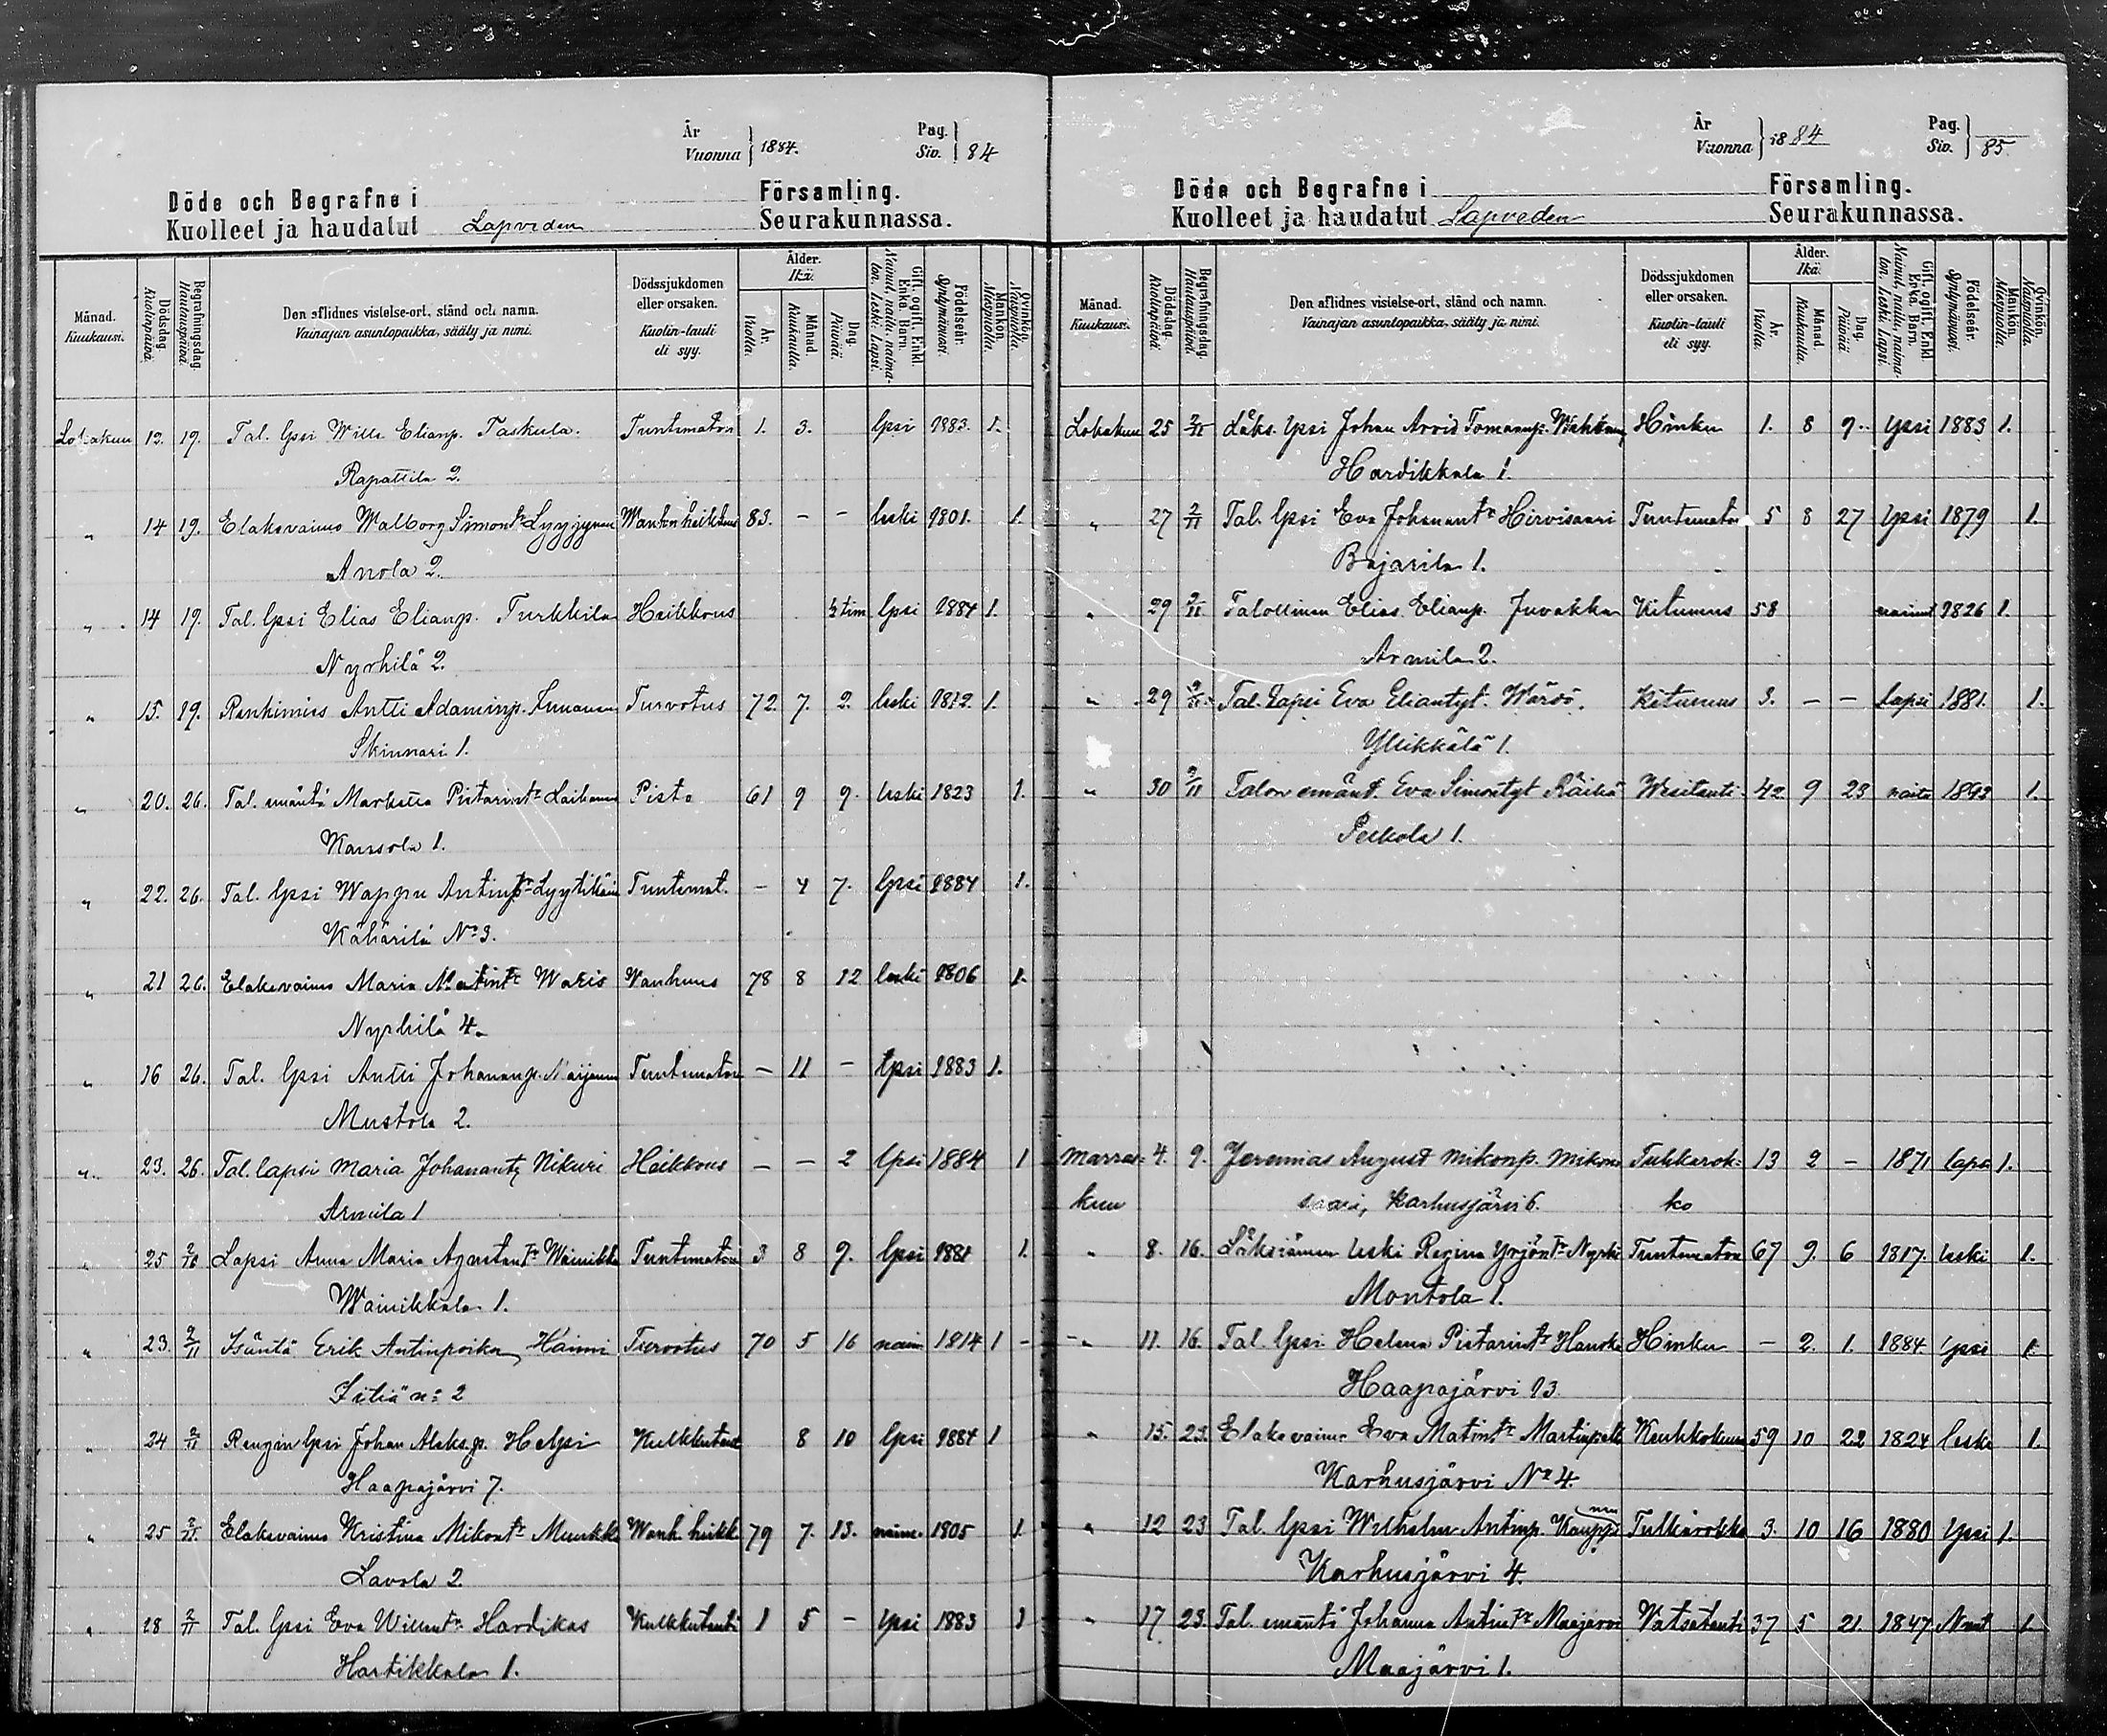 År
Vuonna } 1884.
Pag.
Siv. } 84
Döde och Begrafne i Församling.
Kuolleet ja haudatut Lapveden Seurakunnassa.
Månad. Kuukausi.
Dödsdag. Kuolinpäivä.
Begrafningsdag. Hautauspäivä.
Den aflidnes vistelse-ort, stånd och namn.
Vainajan asuntopaikka, sääty ja nimi.
Dödssjukdomen eller orsaken.
Kuolin-tauti eli syy.
Ålder. Ikä.
År. Vuotta.
Månad. Kuukautta.
Dag. Päivää.
Gift, ogift, Enkl. Enka, Barn.
Nainut, naitu, naimaton. Leski. Lapsi.
Födelseår. Syntymävuosi.
Mankön. Miespuolia.
Qvinkön. Naispuolia.
Lokakuu 12. 19. Tal. lpsi Wille Elianp. Taskula. Tuntematon 1. 3. lpsi 1883. 1.
Rapattila 2.
" 14 19. Elakevaimo Walborg Simontr Wanhan heikkous 83. - - leski 1801. 1.
Anola 2.
" 14 19. Tal. lpsi Elias Elianp. Turkkila Heikkous ½ tim lpsi 1884 1.
Nyrhilä 2.
" 15. 19. Renkimies Antti Adaminp. Turvotus 72. 7. 2. leski 1812. 1.
Skinnari 1.
" 20. 26. Tal. emäntä Marketta Pietarintr Pisto 61 9 9. leski 1823 1.
Kansola 1.
" 22. 26. Tal. lpsi Wappu Antintr Lyytikäin Tuntemat. - 4 7. lpsi 1884 1.
Kähärilä No 3.
" 21 26. Elakevaimo Maria Matintr Waris Wanhuus 78 8 12 leski 1806 1.
Nyrhilä 4.
" 16 26. Tal. lpsi Antti Johananp. Tuntematon - 11 - lpsi 1883 1.
Mustola 2.
" 23. 26. Tal. lapsi Maria Johanantr Nikuri Heikkous - - 2 lpsi 1884 1
Armila 1
" 25 Lapsi Anna Maria Agustantr Wainikka Tuntematon 3 8 9. lpsi 1881 1.
Wainikkala 1.
" 23. 2/11 Isäntä Erik Antinpoika Hanni Turvotus 70 5 16 nain 1814 1 -
n:o 2
" 24 2/11 Rengin lpsi Johan Aleksp. Helpi Kulkkutaut 8 10 lpsi 1884 1
Haapajärvi 7.
" 25 2/11 Elakevaimo Kristina Mikontr Wanh. heikk 79 7. 13. 1805 1.
Lavola 2.
" 28 2/11 Tal. lpsi Eva Willentr Hardikas Kulkkutauti 1 5 - lpsi 1883 1
Hartikkala 1.
År
Vuonna } 1884
Pag.
Siv. } 85.
Döde och Begrafne i Församling.
Kuolleet ja haudatut Lapveden Seurakunnassa.
Månad. Kuukausi.
Dödsdag. Kuolinpäivä.
Begrafningsdag. Hautauspäivä.
Den aflidnes vistelse-ort, stånd och namn.
Vainajan asuntopaikka, sääty ja nimi.
Dödssjukdomen eller orsaken.
Kuolin-tauti eli syy.
Ålder. Ikä.
År. Vuotta.
Månad. Kuukautta.
Dag. Päivää.
Gift, ogift, Enkl. Enka, Barn.
Nainut, naitu, naimaton. Leski. Lapsi.
Födelseår. Syntymävuosi.
Mankön. Miespuolia.
Qvinkön. Naispuolia.
Lokakuu 25 2/11 Läks. lpsi Johan Arvid Tomaanp. Hinku 1. 8 9. lpsi 1883 1.
Hardikkala 1.
" 27 2/11 Tal. lpsi Eva Johanantr Hirvisaari Tuntematon 5 8 27 lpsi 1879 1.
Bajarila 1.
" 29 2/11 Talollinen Elias Elianp. Juvakka Kitumus 58 nainut 1826 1.
Armila 2.
" 29 2/11 Tal. Lapsi Eva Eliantyt. Wärsö. Kitumus 3. - - Lapsi 1881. 1.
Yllikkälä 1.
" 30 2/11 Talon emänt. Eva Simontyt Räikä Wesitauti 42 9 23 naitu 1.
Peltola 1.
Marras- 4. 9. Jeremias August Mikonp. Mikon- Tuhkarok- 13 2 - 1871 lapsi 1.
kuu saari, Karhusjärvi 6. ko
" 8. 16. Läksiämen leski Regina Yrjöntr Nyrki Tuntematon 67 9. 6 1817. leski 1.
Montola 1.
" 11. 16. Tal. lpsi Helena Pietarintr Hanski Hinku - 2. 1. 1884 lpsi 1.
Haapajärvi 13
" 15. 23. Elakevaimo Eva Matintr Martinpelto Keuhkokuume 59 10 22 1824 leski 1.
Karhusjärvi No 4.
" 12 23 Tal. lpsi Wilhelm Antinp. Kauppinen Tulkarokko 3. 10 16 1880 lpsi 1.
Karhusjärvi 4.
" 17 23. Tal. emäntä Johanna Antintr Maajärvi Vatsatauti 37 5 21. 1847 1.
Maajärvi 1.